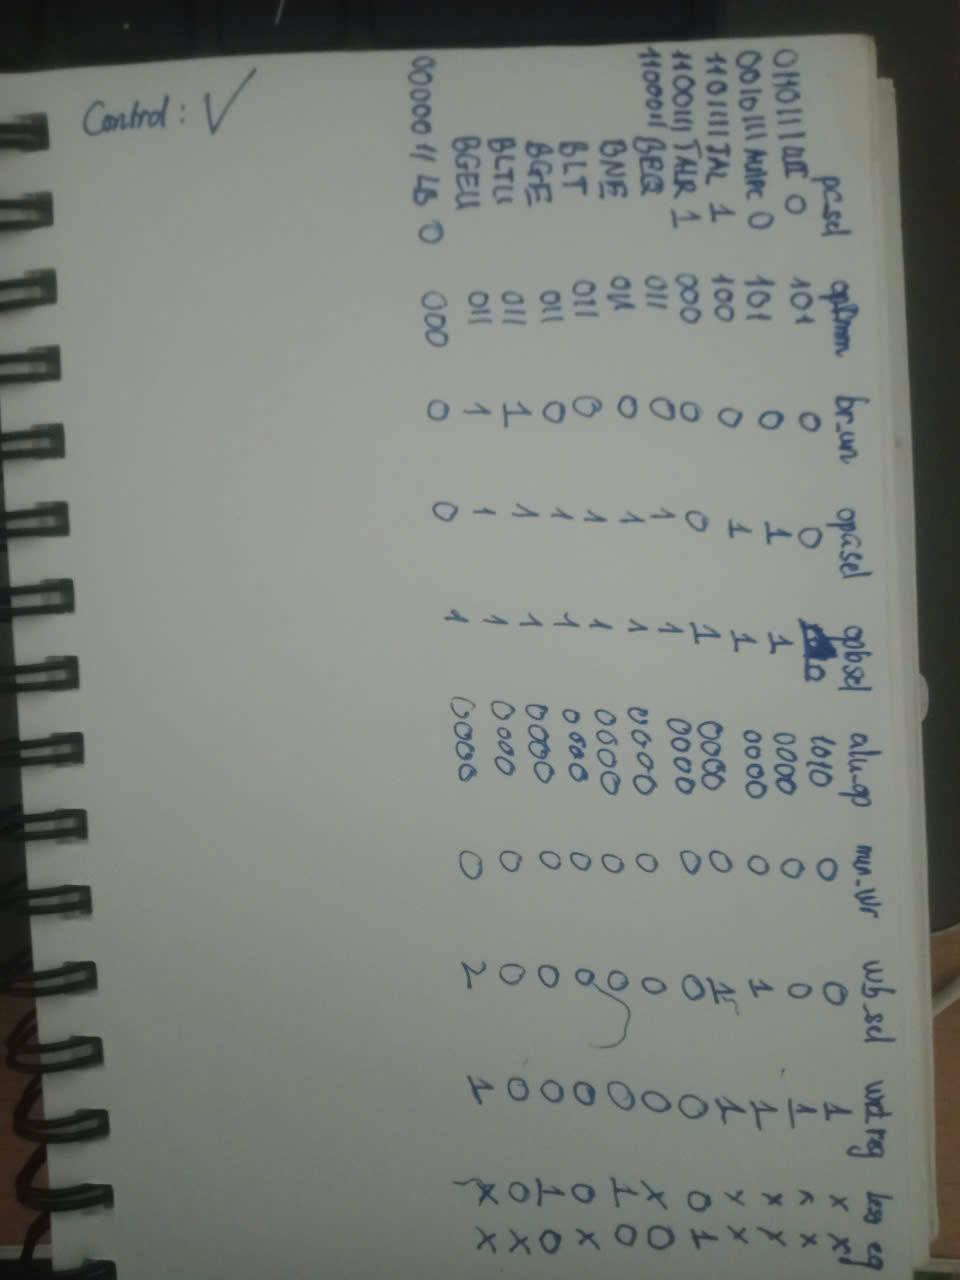 pc_sel opImm br_un opasel opbsel alu_op mem_wr wb_sel wrt reg less eq
0110111 LUI 0 101 0 0 0 1010 0 0 1 x x
0010111 AUIPC 0 101 0 1 1 0000 0 0 1 x x
1101111 JAL 1 100 0 1 1 0000 0 1 1 x x
1100111 JALR 1 000 0 0 1 0000 0 1 1 x x
1100011 BEQ 011 0 1 1 0000 0 0 0 0 1
BNE 011 0 1 1 0000 0 0 0 x 0
BLT 011 0 1 1 0000 0 0 0 1 0
BGE 011 0 1 1 0000 0 0 0 0 x
BLTU 011 1 1 1 0000 0 0 0 1 0
BGEU 011 1 1 1 0000 0 0 0 0 x
0000011 LB 0 000 0 0 1 0000 0 2 1 x x
Control: ✓